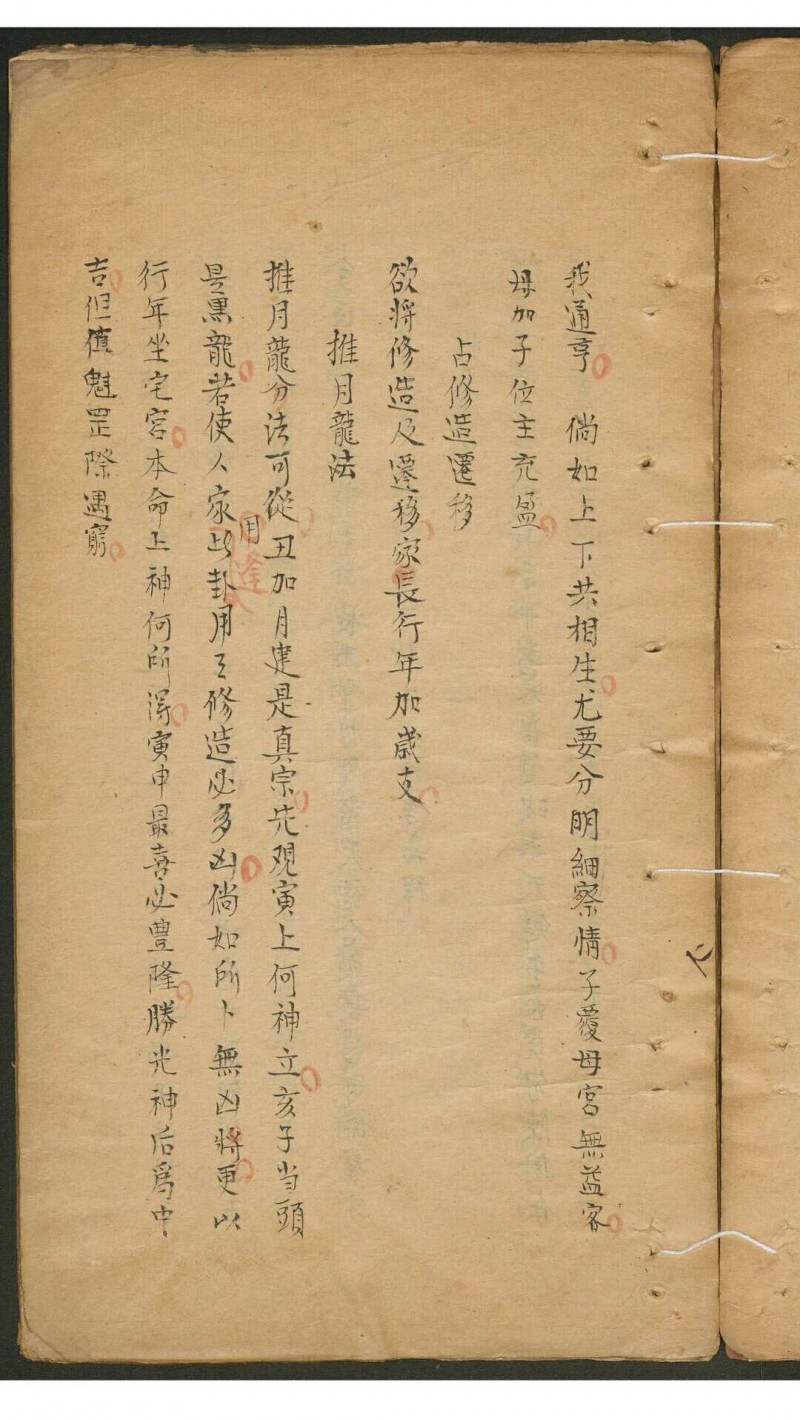 我通亨 倘如上下共相生尤要分明細察情子覆母宮無益客
母加子位主充盈
占修造遷移
欲將修造及遷移家長行年加歲支
推月龍法
推月龍分法可從丑加月建是真宗先观寅上何神立亥子当頭
是黒龍若使人家用此卦用之修造必多凶倘如所卜無凶將更以
行年坐宅宮本命上神何所得寅申最喜必豊隆勝光神后為中
吉但值魁罡際遇窮